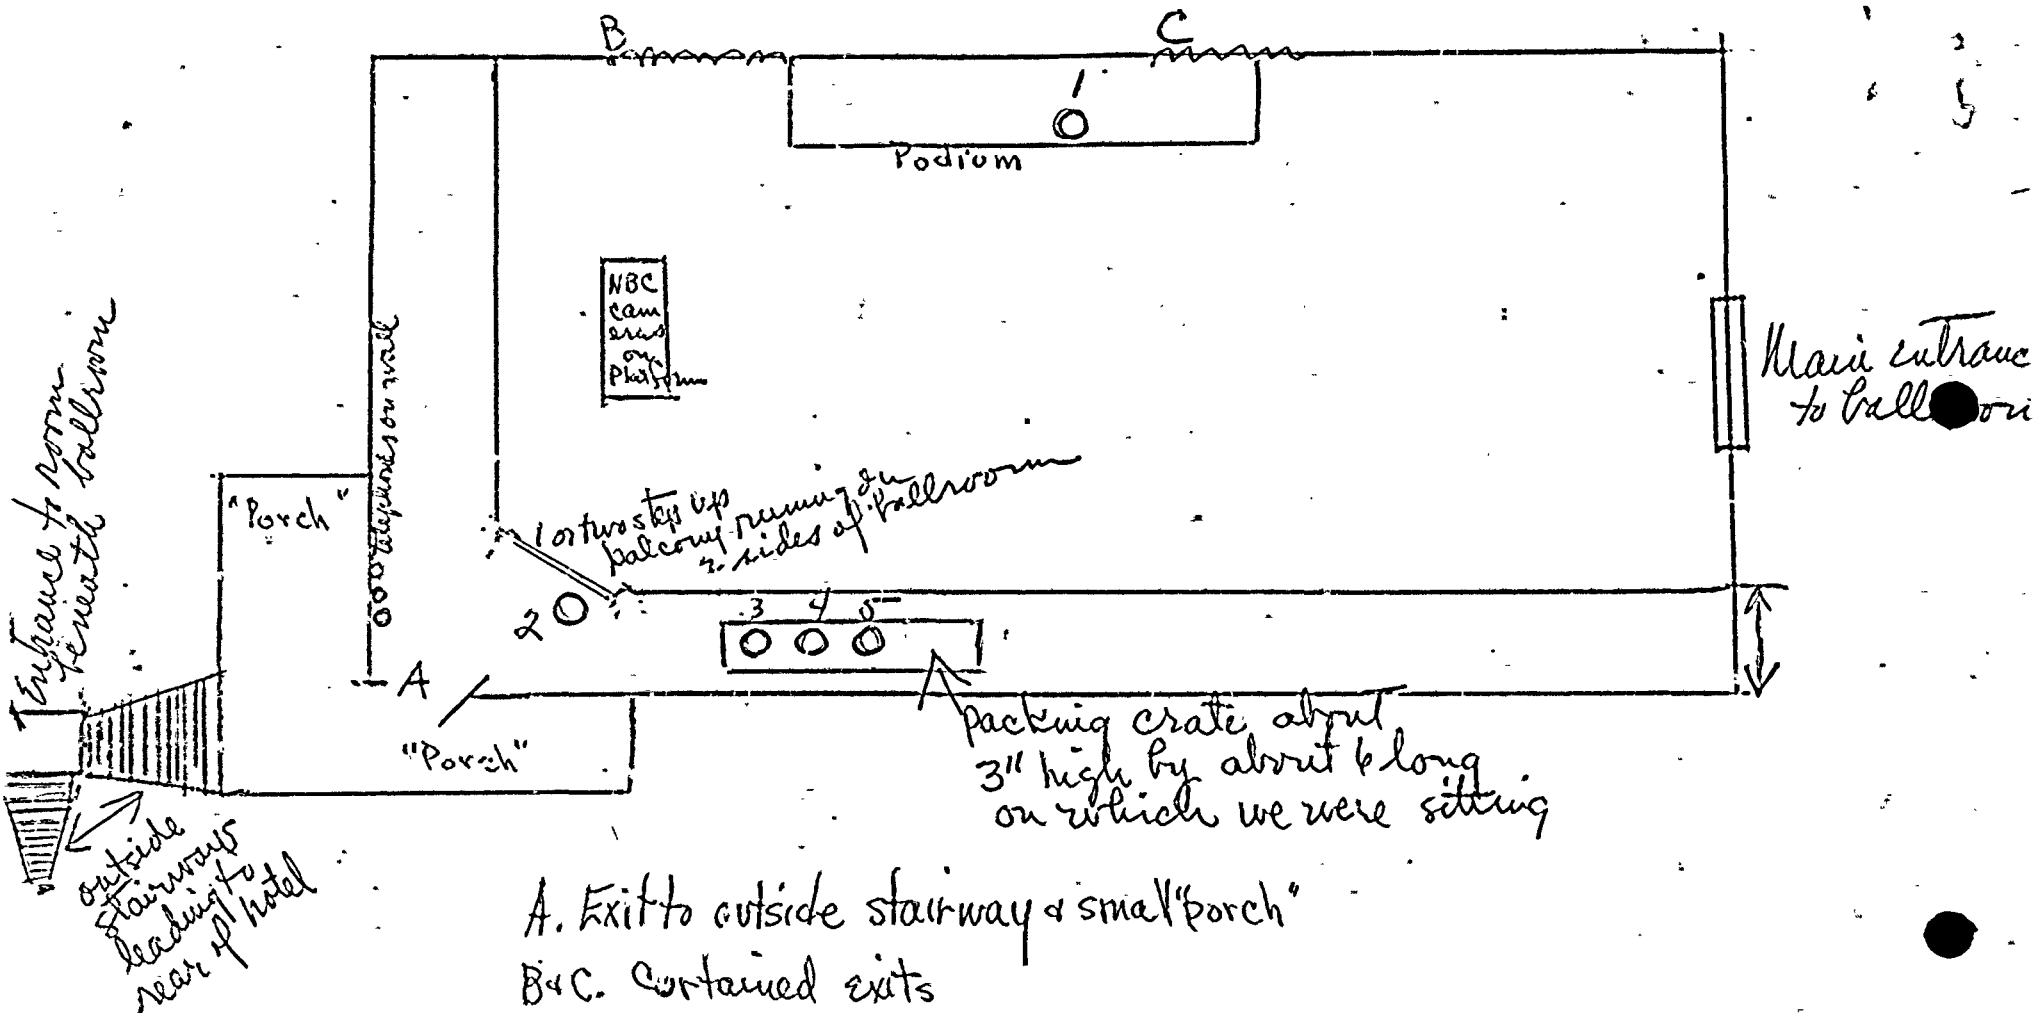 B
C
1
Podium
NBC
cam
eras
on
Platform
telephones on wall
Main entranc
to ball oom
Entrance to room
beneath ballroom
"Porch"
1 or two steps up
balcony running on
2 sides of ballroom
2
3 4 5
A
"Porch"
Packing crate about
3" high by about 6 long
on which we were sitting
outside
stairways
leading to
rear of hotel
A. Exit to outside stairway & small "porch"
B&C. Curtained exits